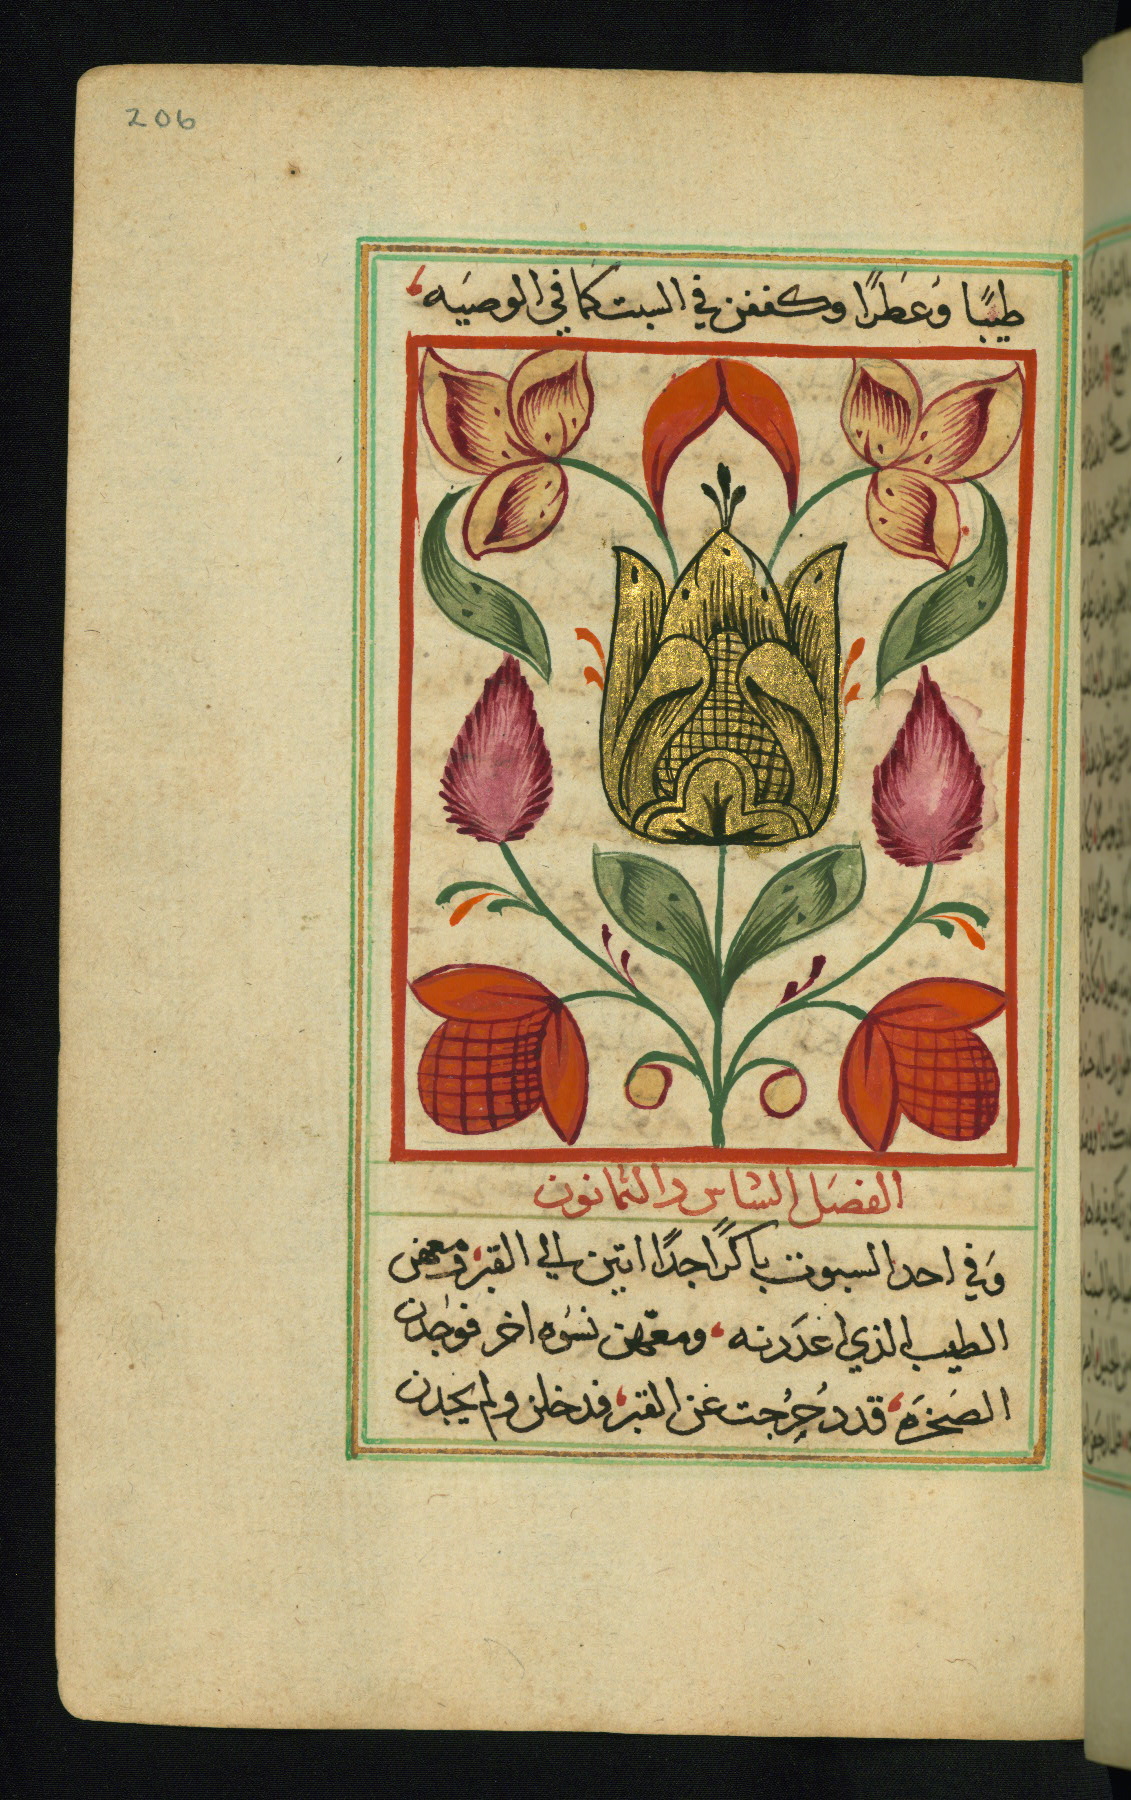 206
طيبًا وَعطرًا وكففن في السبت كما في الوصيَه
الفصَل السَّاس والثمانون
وَفي احد السبوت باكرًا جدًا اتين الي القبر ومعهن
الطيب الذي اعدَدنه، ومعَهن نسوَه اخر فوجَدن
الصَخرَه، قد دُحرِجت عن القبر، فدخلن ولم يجدن